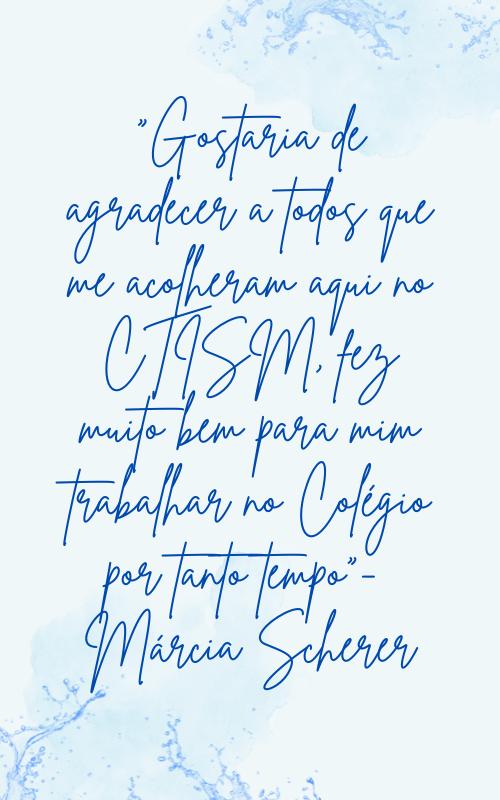 "Gostaria de
agradecer a todos que
me acolheram aqui no
CTISM, fez
muito bem para mim
trabalhar no Colégio
por tanto tempo"-
Márcia Scherer